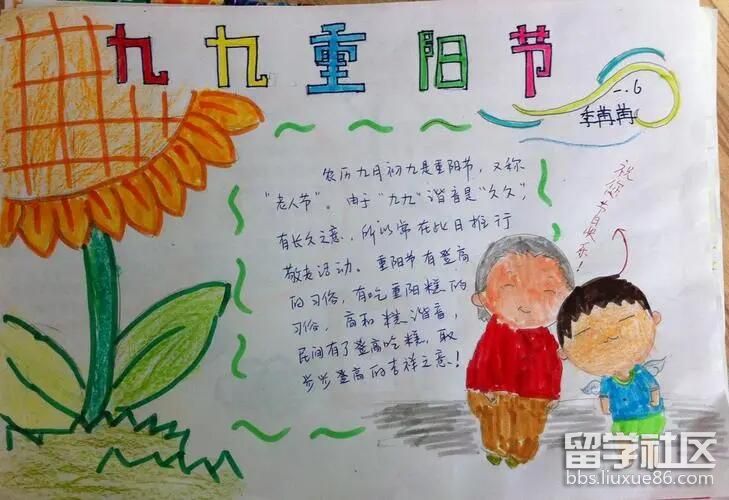 九九重阳节
一.6
李苒苒
祝您节日快乐！
农历九月初九是重阳节，又称
“老人节”。由于“九九”谐音是“久久”，
有长久之意，所以常在此日推行
敬老活动。重阳节有登高
的习俗，有吃重阳糕的
习俗，高和糕谐音，
民间有了登高吃糕，取
步步登高的吉祥之意！
留学社区
bbs.liuxue86.com